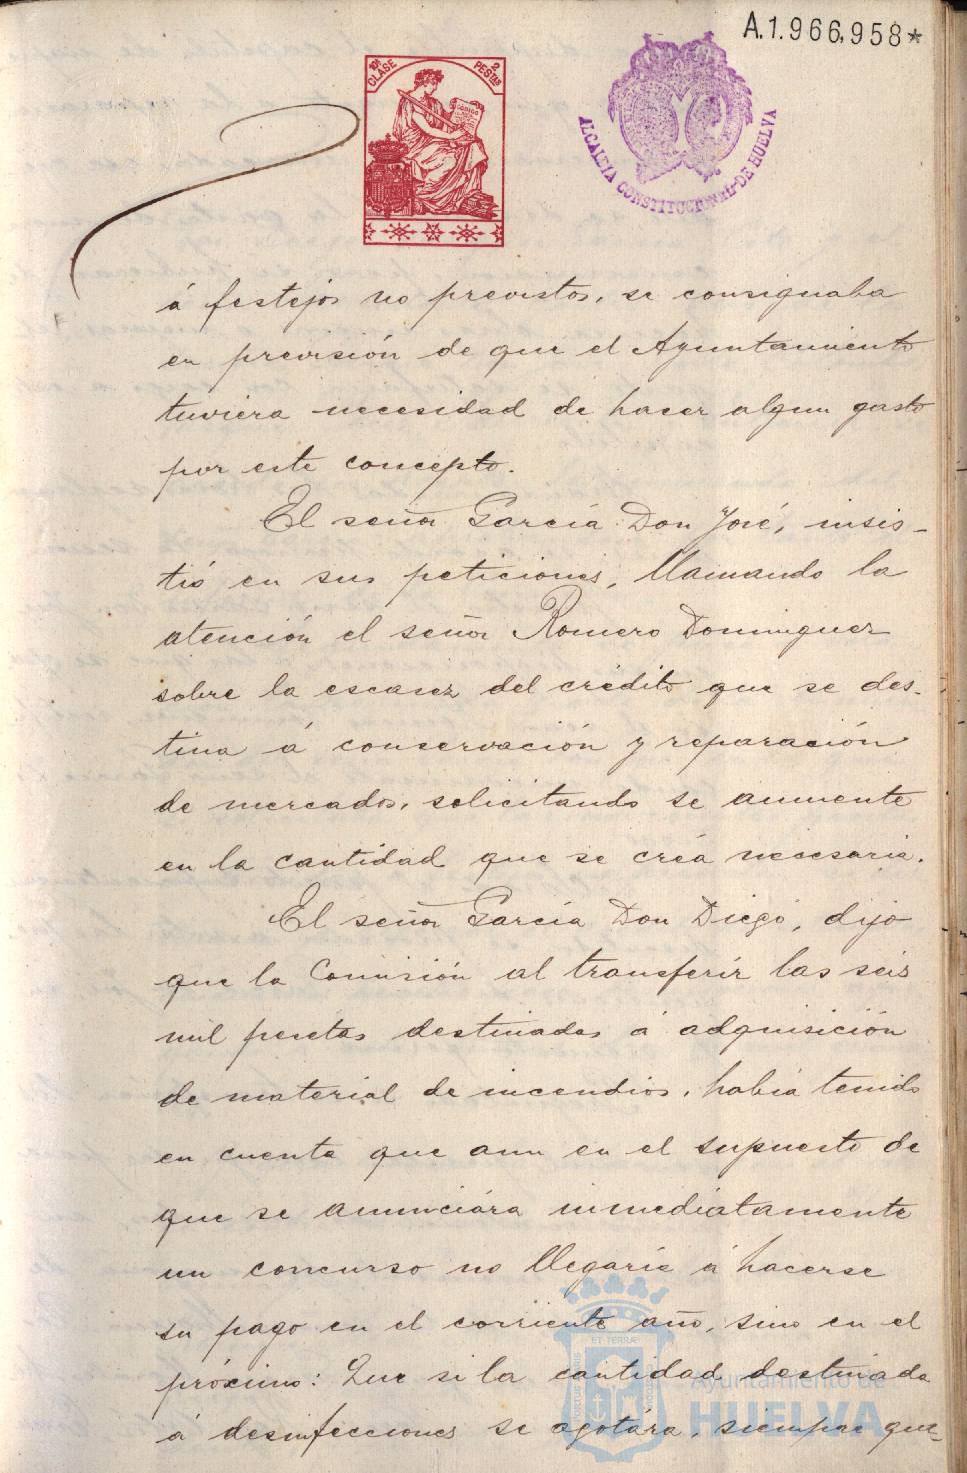 A.1.966,958*
10ª CLASE 2 PESTAS
CODIGO
ALCALDIA CONSTITUCIONAL DE HUELVA
á festejos no previstos, se consignaba
en previsión de que el Ayuntamiento
tuviera necesidad de hacer algun gasto
por este concepto.
El señor García Don José, insis-
tió en sus peticiones, llamando la
atención el señor Romero Dominguez
sobre la escasez del crédito que se des-
tina á conservación y reparación
de mercados, solicitando se aumente
en la cantidad que se créa necesaria.
El señor García Don Diego, dijo
que la Comisión al transferir las seis
mil pesetas destinadas á adquisición
de material de incendios, había tenido
en cuenta que aun en el supuesto de
que se anunciára inmediatamente
un concurso no llegaría á hacerse
su pago en el corriente año, sino en el
próximo: Que si la cantidad destinada
á desinfecciones se agotára, siempre que-
ET TERRÆ
Ayuntamiento de
HUELVA